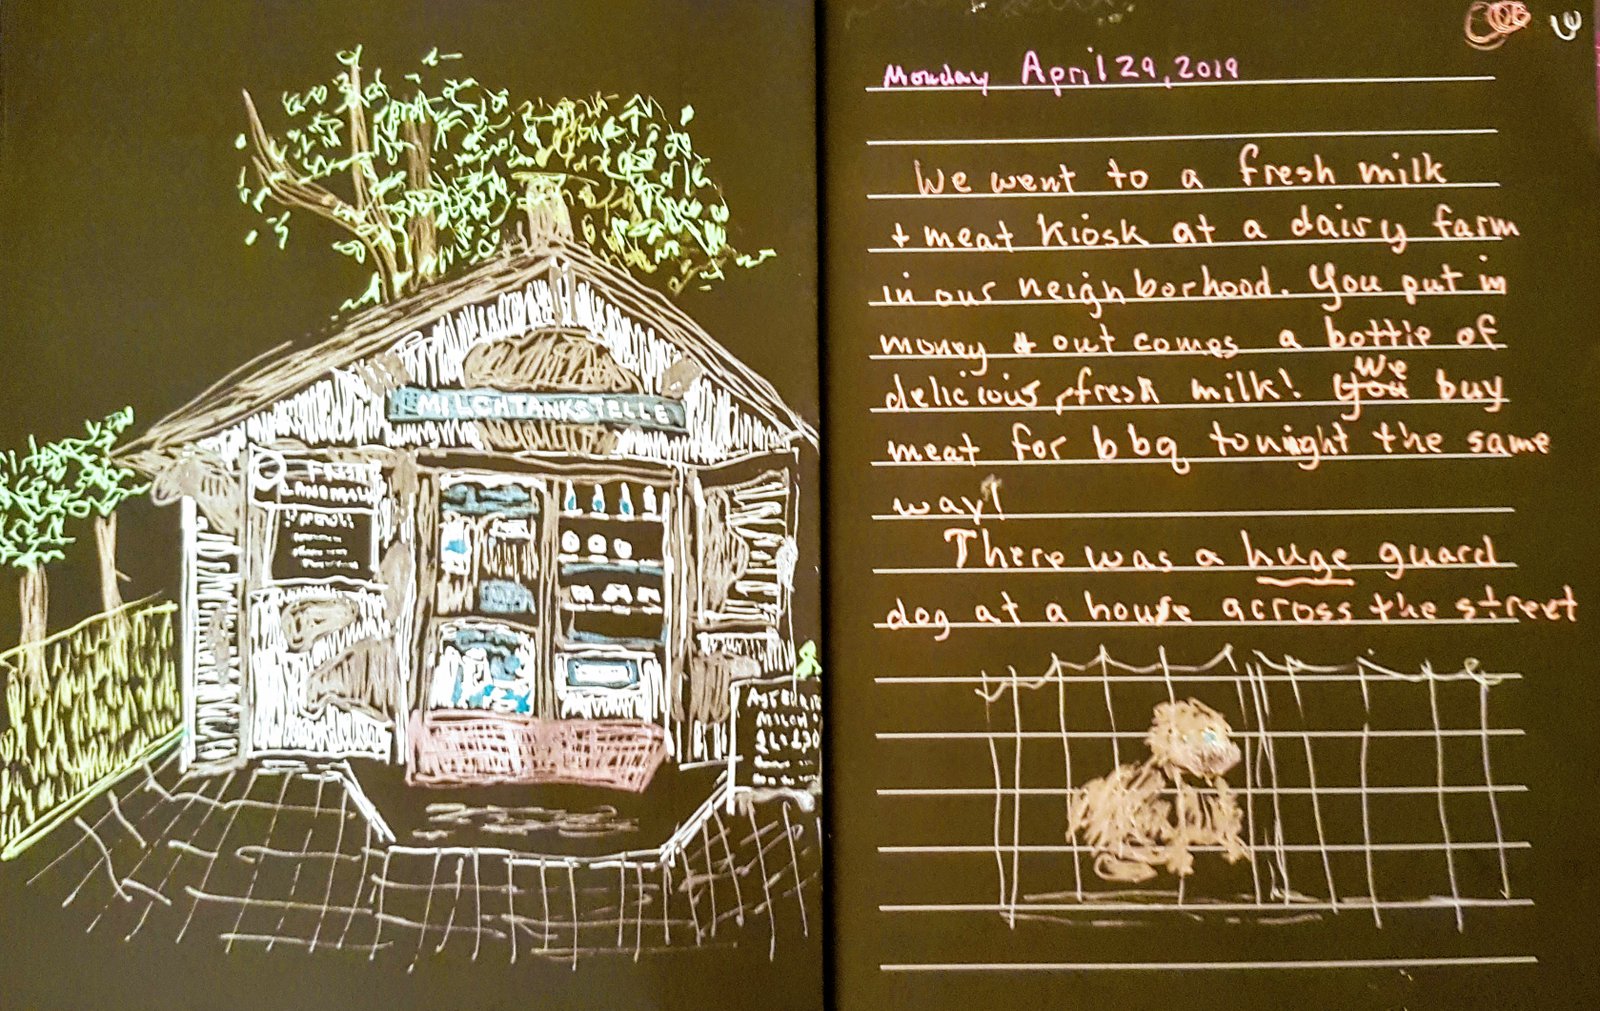 MILCHTANKSTELLE
FRISCHE
LANDMILCH
MILCH
Monday April 29, 2019
We went to a fresh milk
+ meat kiosk at a dairy farm
in our neighborhood. You put in
money & out comes a bottle of
delicious, fresh milk! We You buy
meat for bbq tonight the same
way!
There was a huge guard
dog at a house across the street